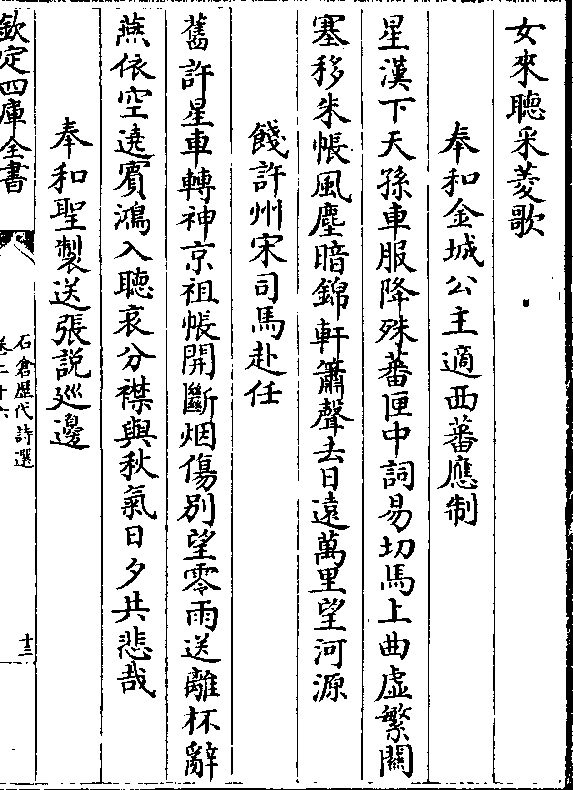 女來聽采菱歌
奉和金城公主適西蕃應制
星漢下天孫車服降殊蕃匣中詞易切馬上曲虛繁關
塞移朱帳風塵暗錦軒簫聲去日遠萬里望河源
餞許州宋司馬赴任
舊許星車轉神京祖帳開斷烟傷別望零雨送離杯辭
燕依空遶賓鴻入聽哀分襟與秋氣日夕共悲哉
奉和聖製送張說巡邊
欽定四庫全書
石倉歷代詩選
卷二十六
十三